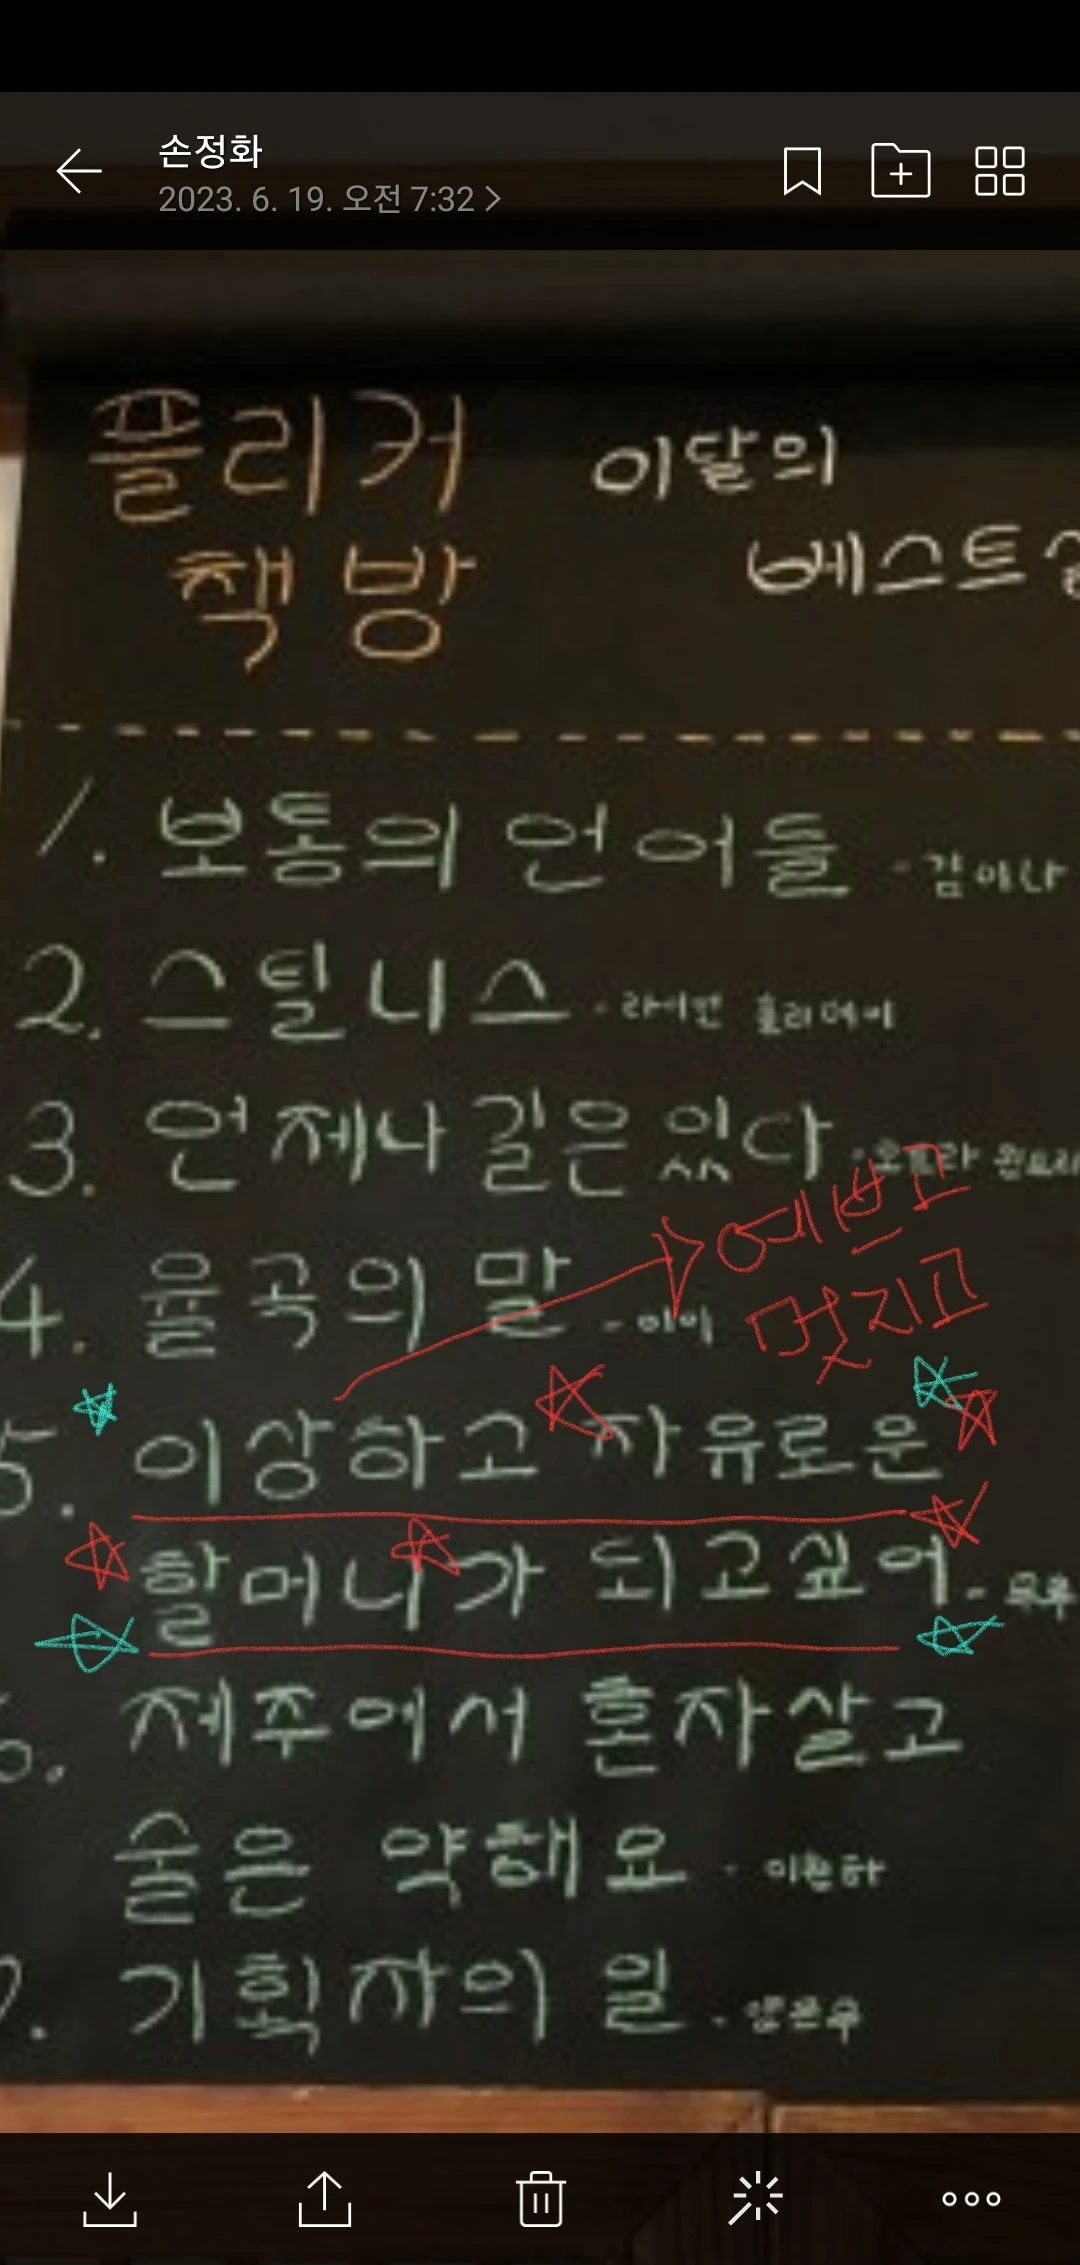 손정화
2023. 6. 19. 오전 7:32
플리커 이달의
책방 베스트
1. 보통의 언어들 - 김이나
2. 스틸니스 - 라이언 홀리데이
3. 언제나 길은 있다 - 오프라 윈프리
예쁘고
4. 율곡의 말 - 이이
멋지고
5. 이상하고 자유로운
할머니가 되고싶어 - 무루
6. 제주에서 혼자살고
술은 약해요 - 이원하
7. 기획자의 일 - 양은우